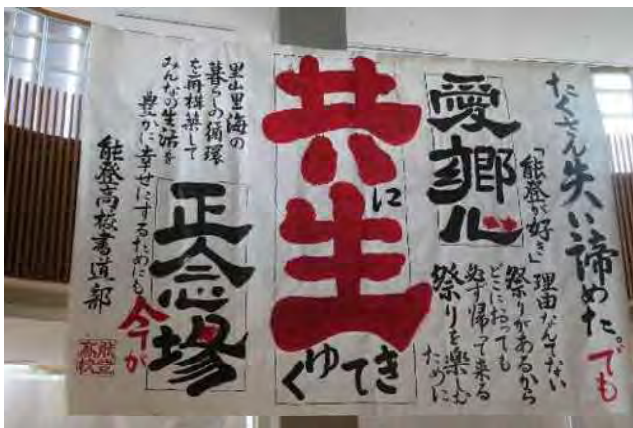 たくさん失い諦めた。でも
愛郷心
「能登が好き」
理由なんてない
祭りがあるから
どこにおっても
必ず帰って来る
祭りを楽しむ
ために
共に生きてゆく
里山里海の
暮らしの循環
を再構築して
みんなの生活を
豊かに幸せにするためにも今が
正念場
能登高校書道部
能登
高校